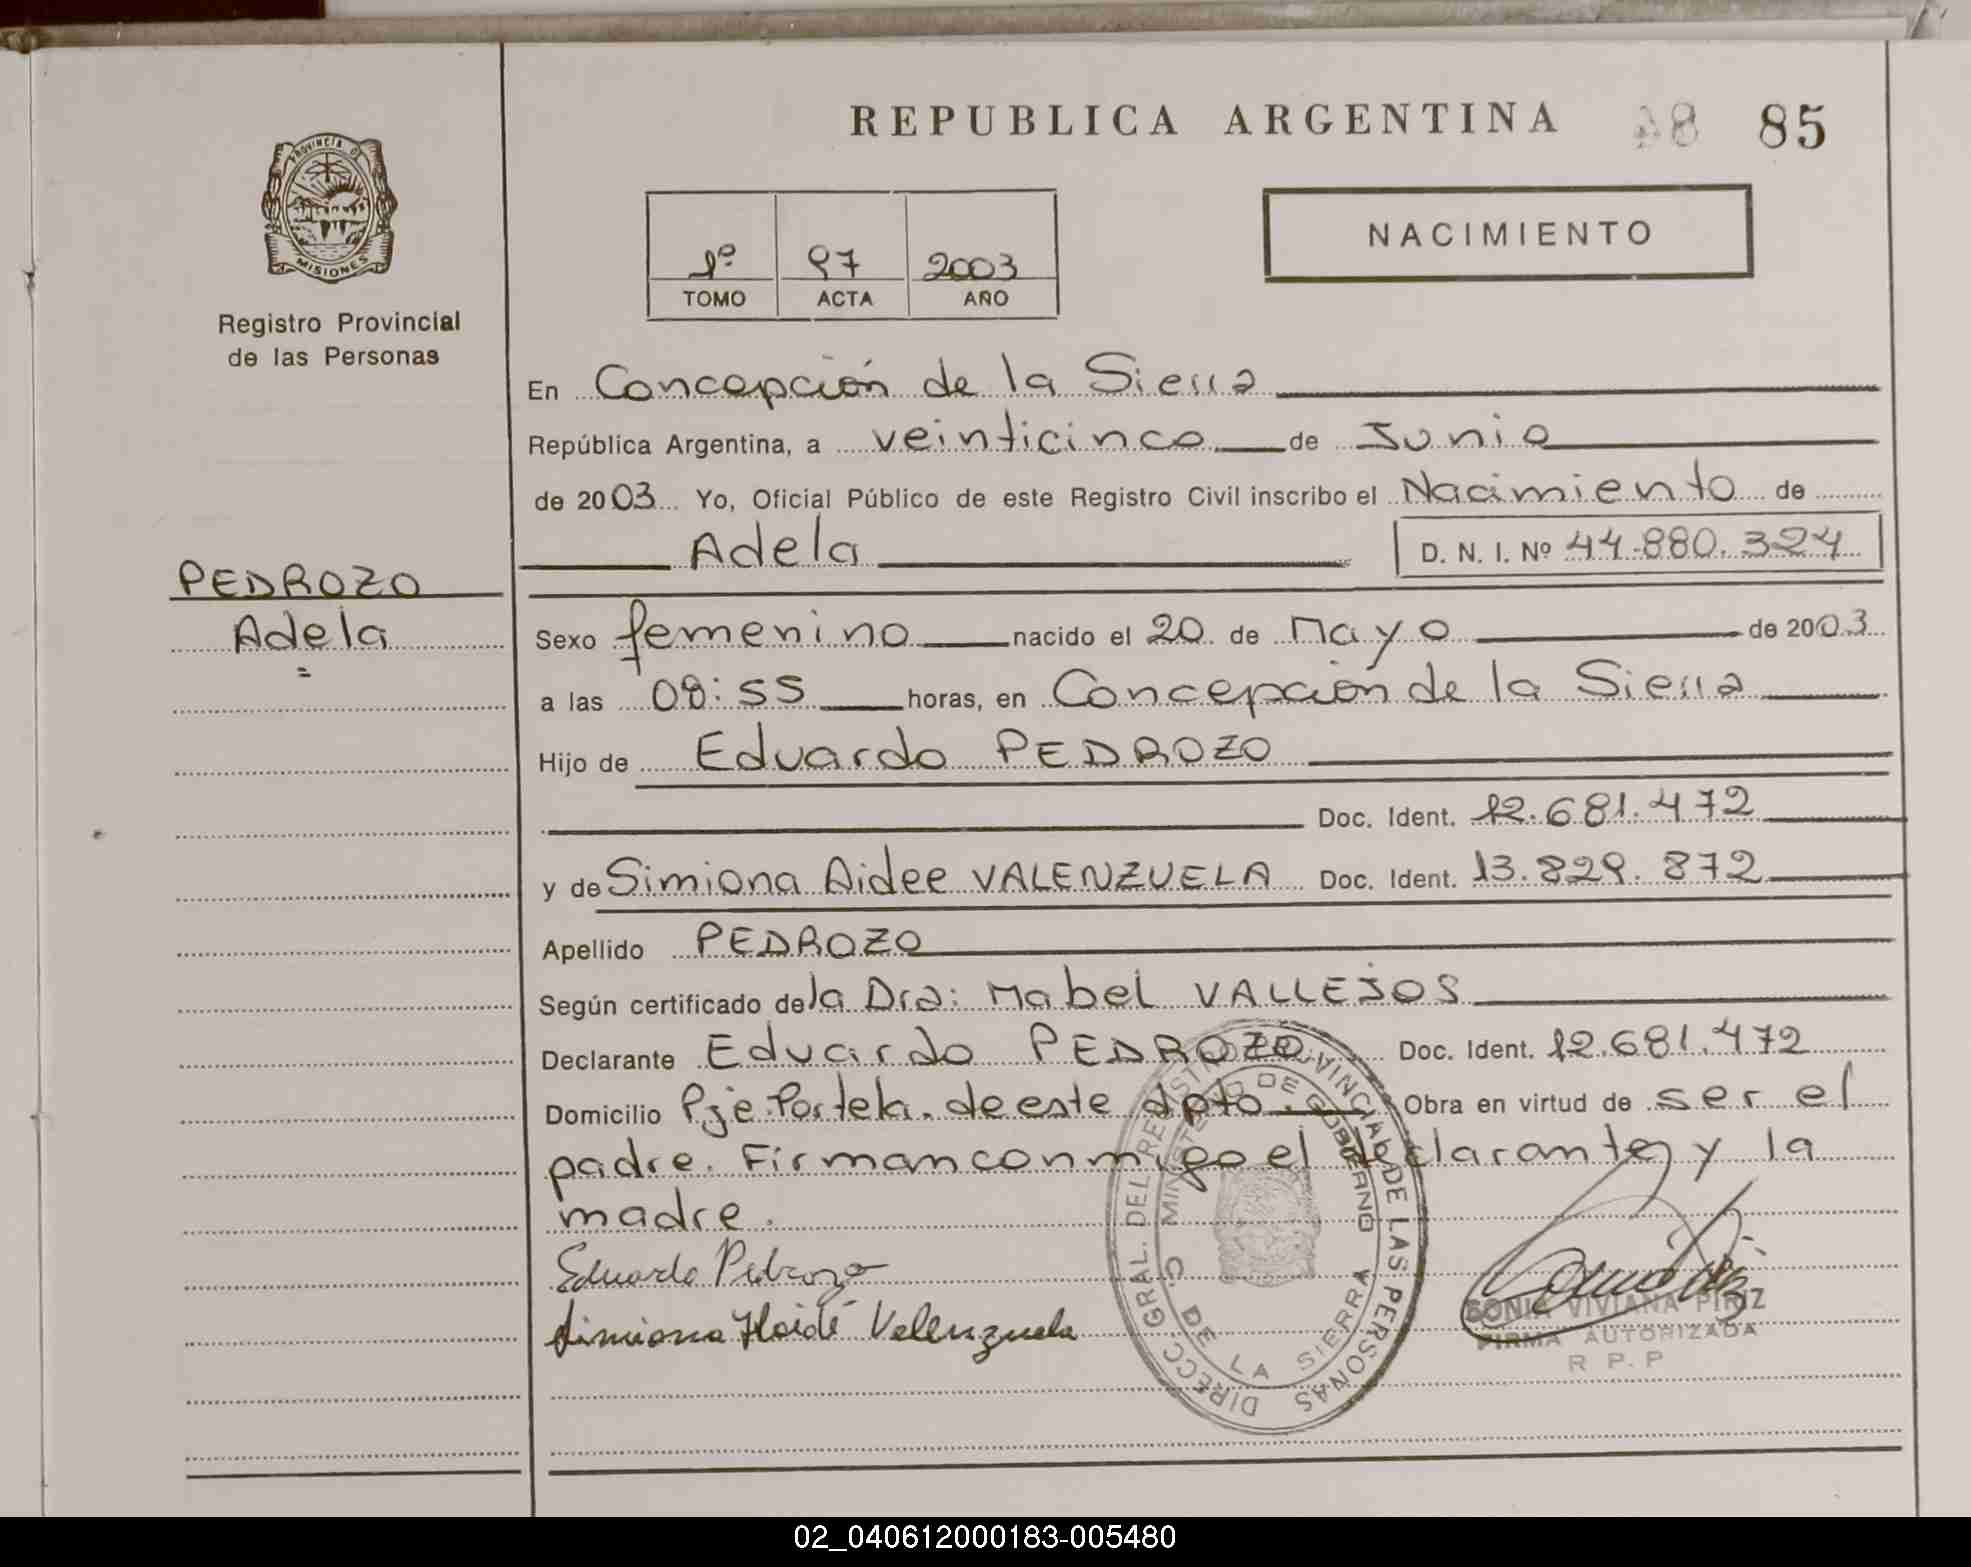 REPUBLICA ARGENTINA 98 85
PROVINCIA DE MISIONES
Registro Provincial
de las Personas
1º 97 2003
TOMO ACTA AÑO
NACIMIENTO
En Concepción de la Sierra
República Argentina, a veinticinco de Junio
de 2003 Yo, Oficial Público de este Registro Civil inscribo el Nacimiento de
Adela D. N. I. Nº 44.880.324
PEDROZO
Adela
Sexo femenino nacido el 20 de Mayo de 2003
a las 08:55 horas, en Concepción de la Sierra
Hijo de Eduardo PEDROZO
Doc. Ident. 12.681.472
y de Simiona Aidee VALENZUELA Doc. Ident. 13.829.872
Apellido PEDROZO
Según certificado de la Dra: Mabel VALLEJOS
Declarante Eduardo PEDROZO Doc. Ident. 12.681.472
Domicilio Pje. Portela. de este dpto. Obra en virtud de ser el
padre. Firman conmigo el declarante y la
madre.
Eduardo Pedrozo
Simiona Haidé Valenzuela
DIRECC. GRAL. DEL REGISTRO PROVINCIAL DE LAS PERSONAS
MINISTERIO DE GOBIERNO
C. DE LA SIERRA
SONIA VIVIANA PIRIZ
FIRMA AUTORIZADA
R P. P
02_040612000183-005480